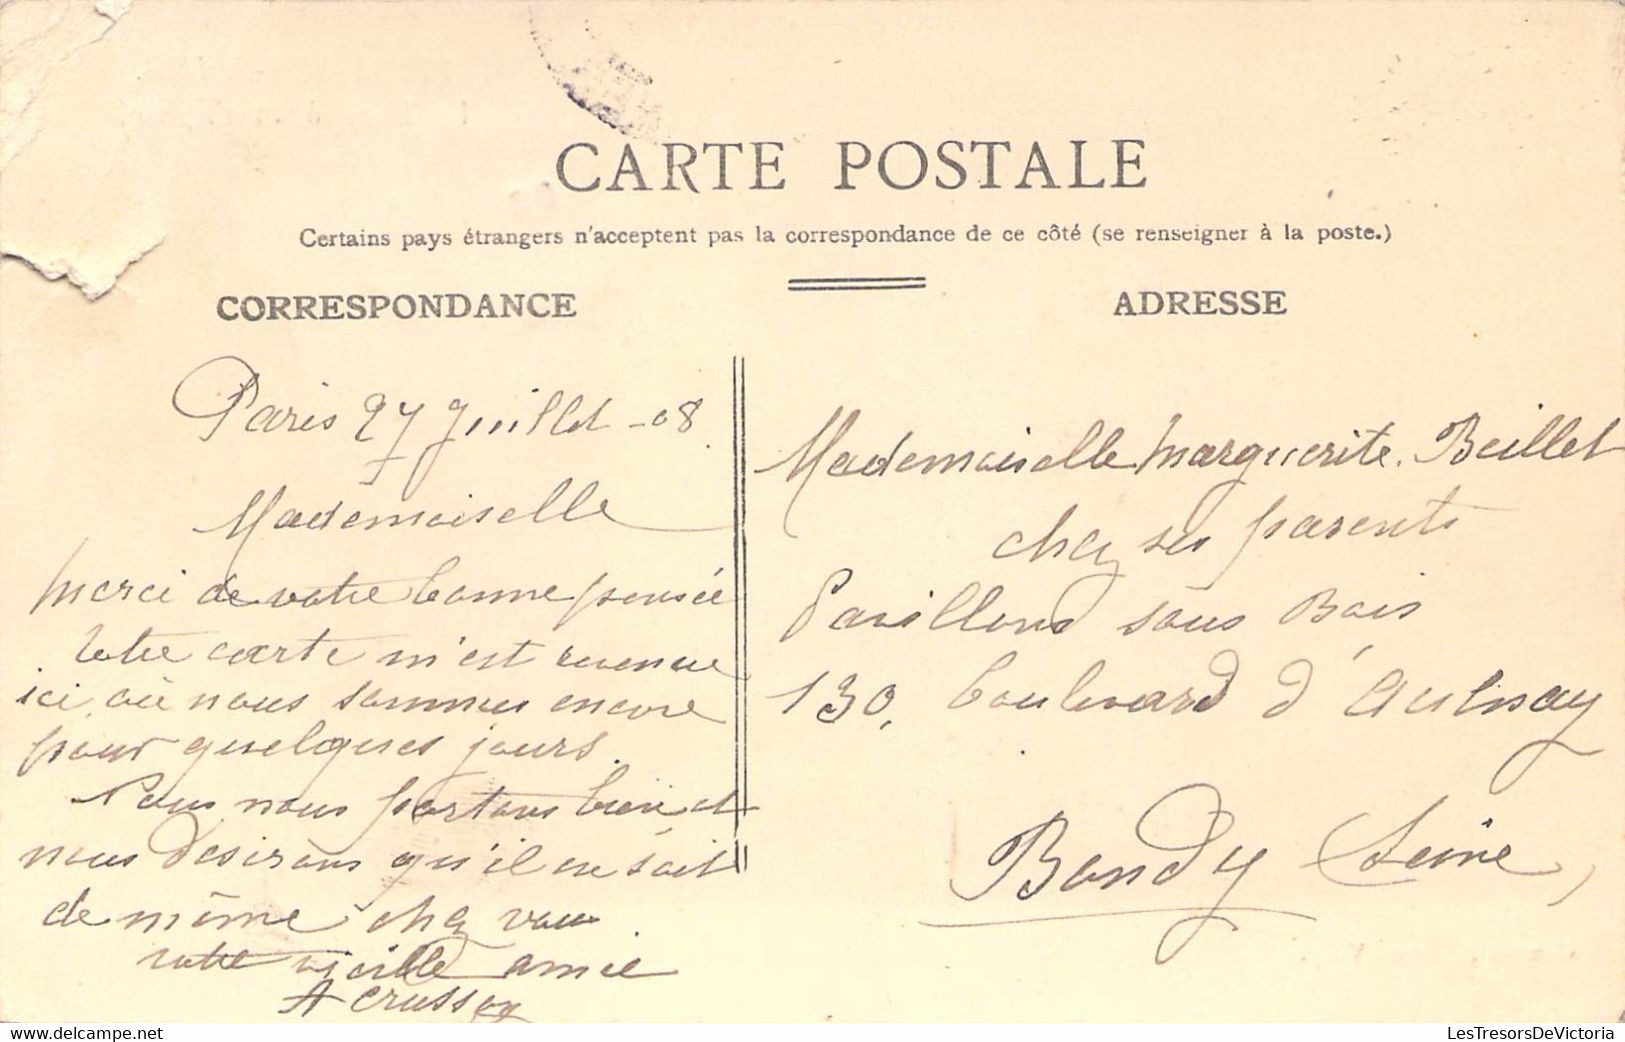 CARTE POSTALE
Certains pays étrangers n'acceptent pas la correspondance de ce côté (se renseigner à la poste.)
CORRESPONDANCE
Paris 27 Juillet -08
Mademoiselle
Merci de votre bonne pensée
Votre carte m'est revenue
ici où nous sommes encore
pour quelques jours.
Tous nous portons bien et
nous désirons qu'il en soit
de même chez vous
votre vieille amie
A Crussey
ADRESSE
Mademoiselle Marguerite Beillet
chez ses parents
Pavillons sous Bois
130, boulevard d'Aulnay
Bondy (Seine)
LesTresorsDeVictoria
www.delcampe.net